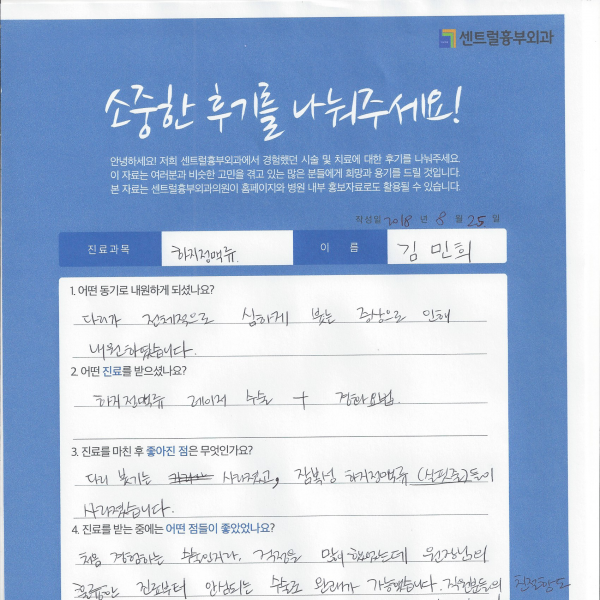 센트럴흉부외과
소중한 후기를 나눠주세요!
안녕하세요! 저희 센트럴흉부외과에서 경험했던 시술 및 치료에 대한 후기를 나눠주세요.
이 자료는 여러분과 비슷한 고민을 겪고 있는 많은 분들에게 희망과 용기를 드릴 것입니다.
본 자료는 센트럴흉부외과의원이 홈페이지와 병원 내부 홍보자료로도 활용될 수 있습니다.
작성일 2018 년 8 월 25 일
진료과목 하지정맥류. 이 름 김민희
1. 어떤 동기로 내원하게 되셨나요?
다리가 전체적으로 심하게 붓는 증상으로 인해
내원하였습니다.
2. 어떤 진료를 받으셨나요?
하지정맥류 레이저 수술 + 경화요법.
3. 진료를 마친 후 좋아진 점은 무엇인가요?
다리 붓기는 사라졌고, 잠복성 하지정맥류 (실핏줄)들이
사라졌습니다.
4. 진료를 받는 중에는 어떤 점들이 좋았었나요?
처음 경험하는 수술인지라, 걱정을 많이 했었는데 원장님의
꼼꼼한 진료부터 안심되는 수술로 완쾌가 가능했습니다. 직원분들의 친절함도